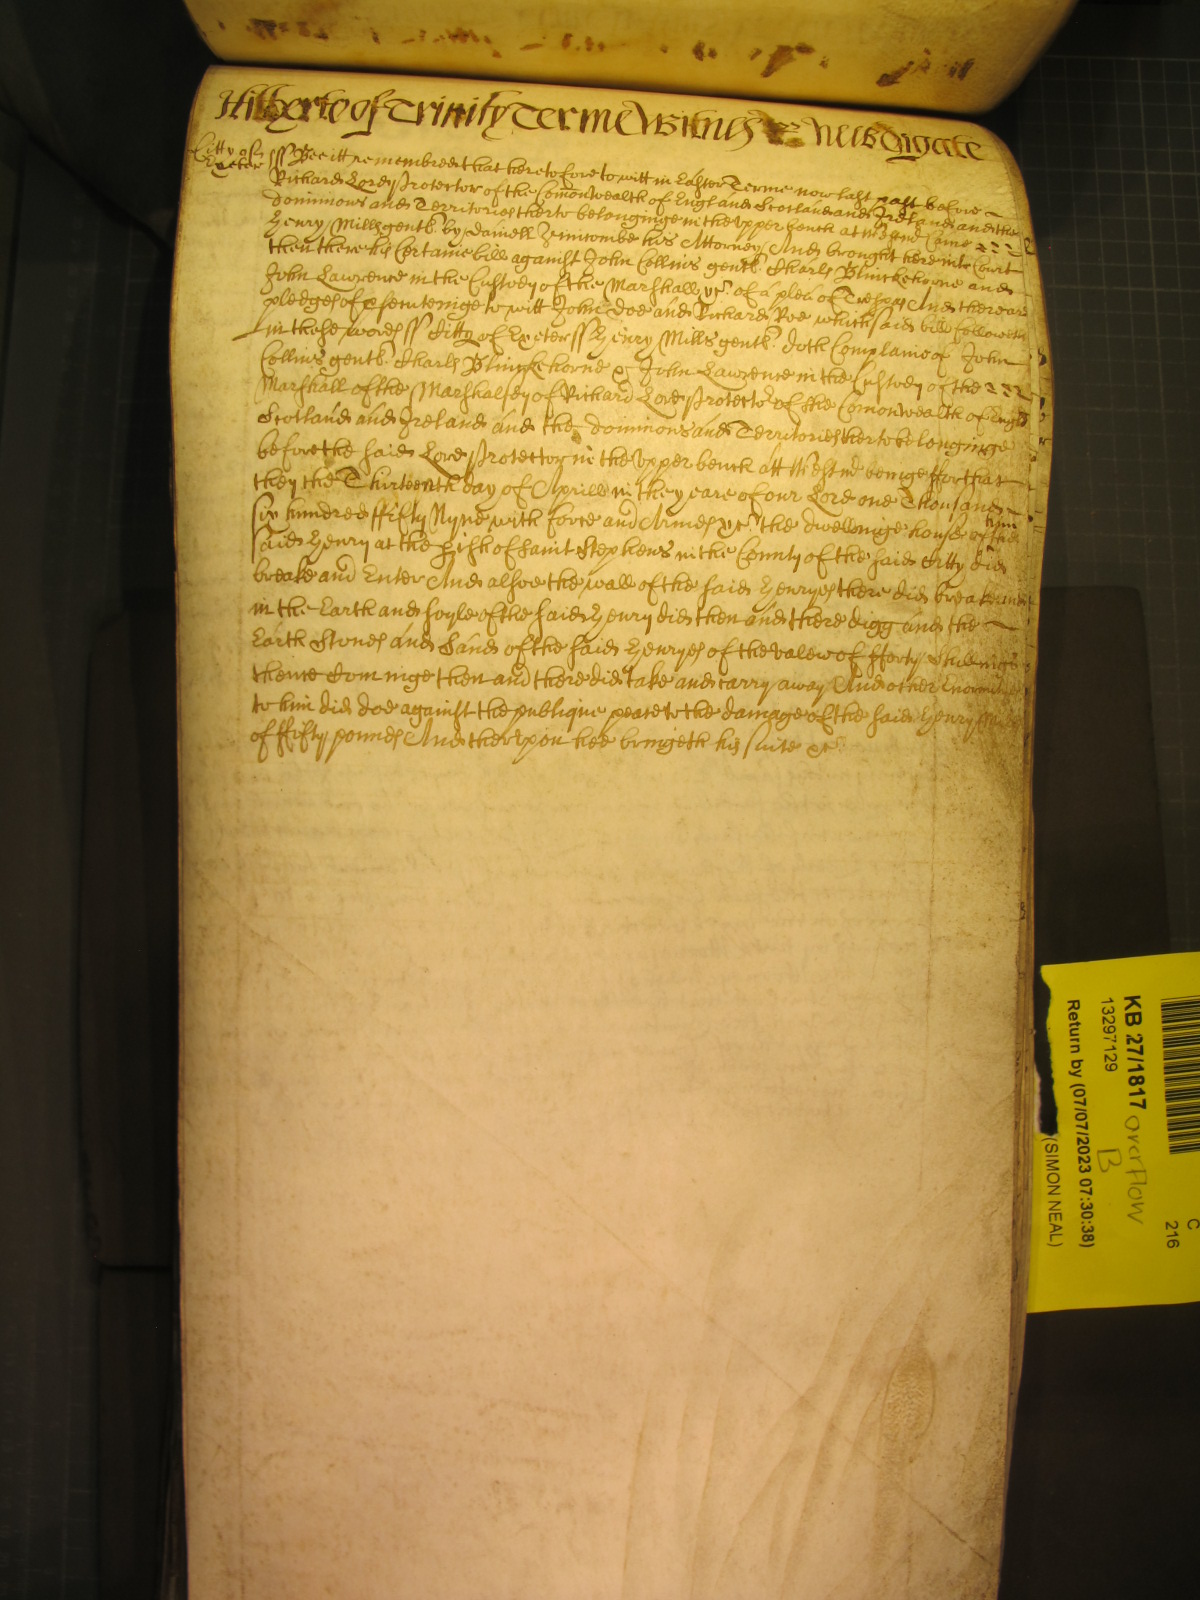 Hitherto of Trinity Terme Witnes Newdigate
Citty of
Exeter ss Bee itt remembred that heretofore to witt in Easter Terme now last past before
Richard Lord Protector of the Comonwealth of England Scotland and Ireland and the
dominions and Territories therto belonginge in the upper bench at Westmr Came
Henry Mills gent by Daniell his Attorney And brought here into Court
then there his Certaine bill against John Collins gent Charls Blinckhorne and
John Lawrence in the Custody of the Marshall &c of a plea of Trespas And there are
pledges of prosecuteinge to witt John Doe and Richard Roe which said bill followeth
in these words ss Citty of Exeter ss Henry Mills gent doth Complaine of John
Collins gent Charls Blinckehorne & John Lawrence in the Custody of the
Marshall of the Marshalsey of Richard Lord Protector of the Comonwealth of Engld
Scotland and Ireland and the dominions and Territories therto belonginge
before the said Lord Protector in the upper bench att Westmr beinge ffor that
they the Thirteenth day of Aprill in the yeare of our Lord one Thousand
six hundred ffifty Nyne with force and Armes &c the dwellinge house of him the
said Henry at the pish of Saint Stephens in the County of the said Citty did
breake and Enter And alsoe the wall of the said Henryes there did breake and
in the Earth and soyle of the said Henry did then and there digg and the
Earth Stones and Sand of the said Henryes of the valew of fforty Shillings
thence Cominge then and there did take and carry away And other Enormities
to him did doe against the publique peace to the damage of the said Henry Mills
of ffifty pounds And therupon hee bringeth his suite &c
KB 27/1817 overflow
B
13297129
Return by (07/07/2023 07:30:38)
(SIMON NEAL)
C
216